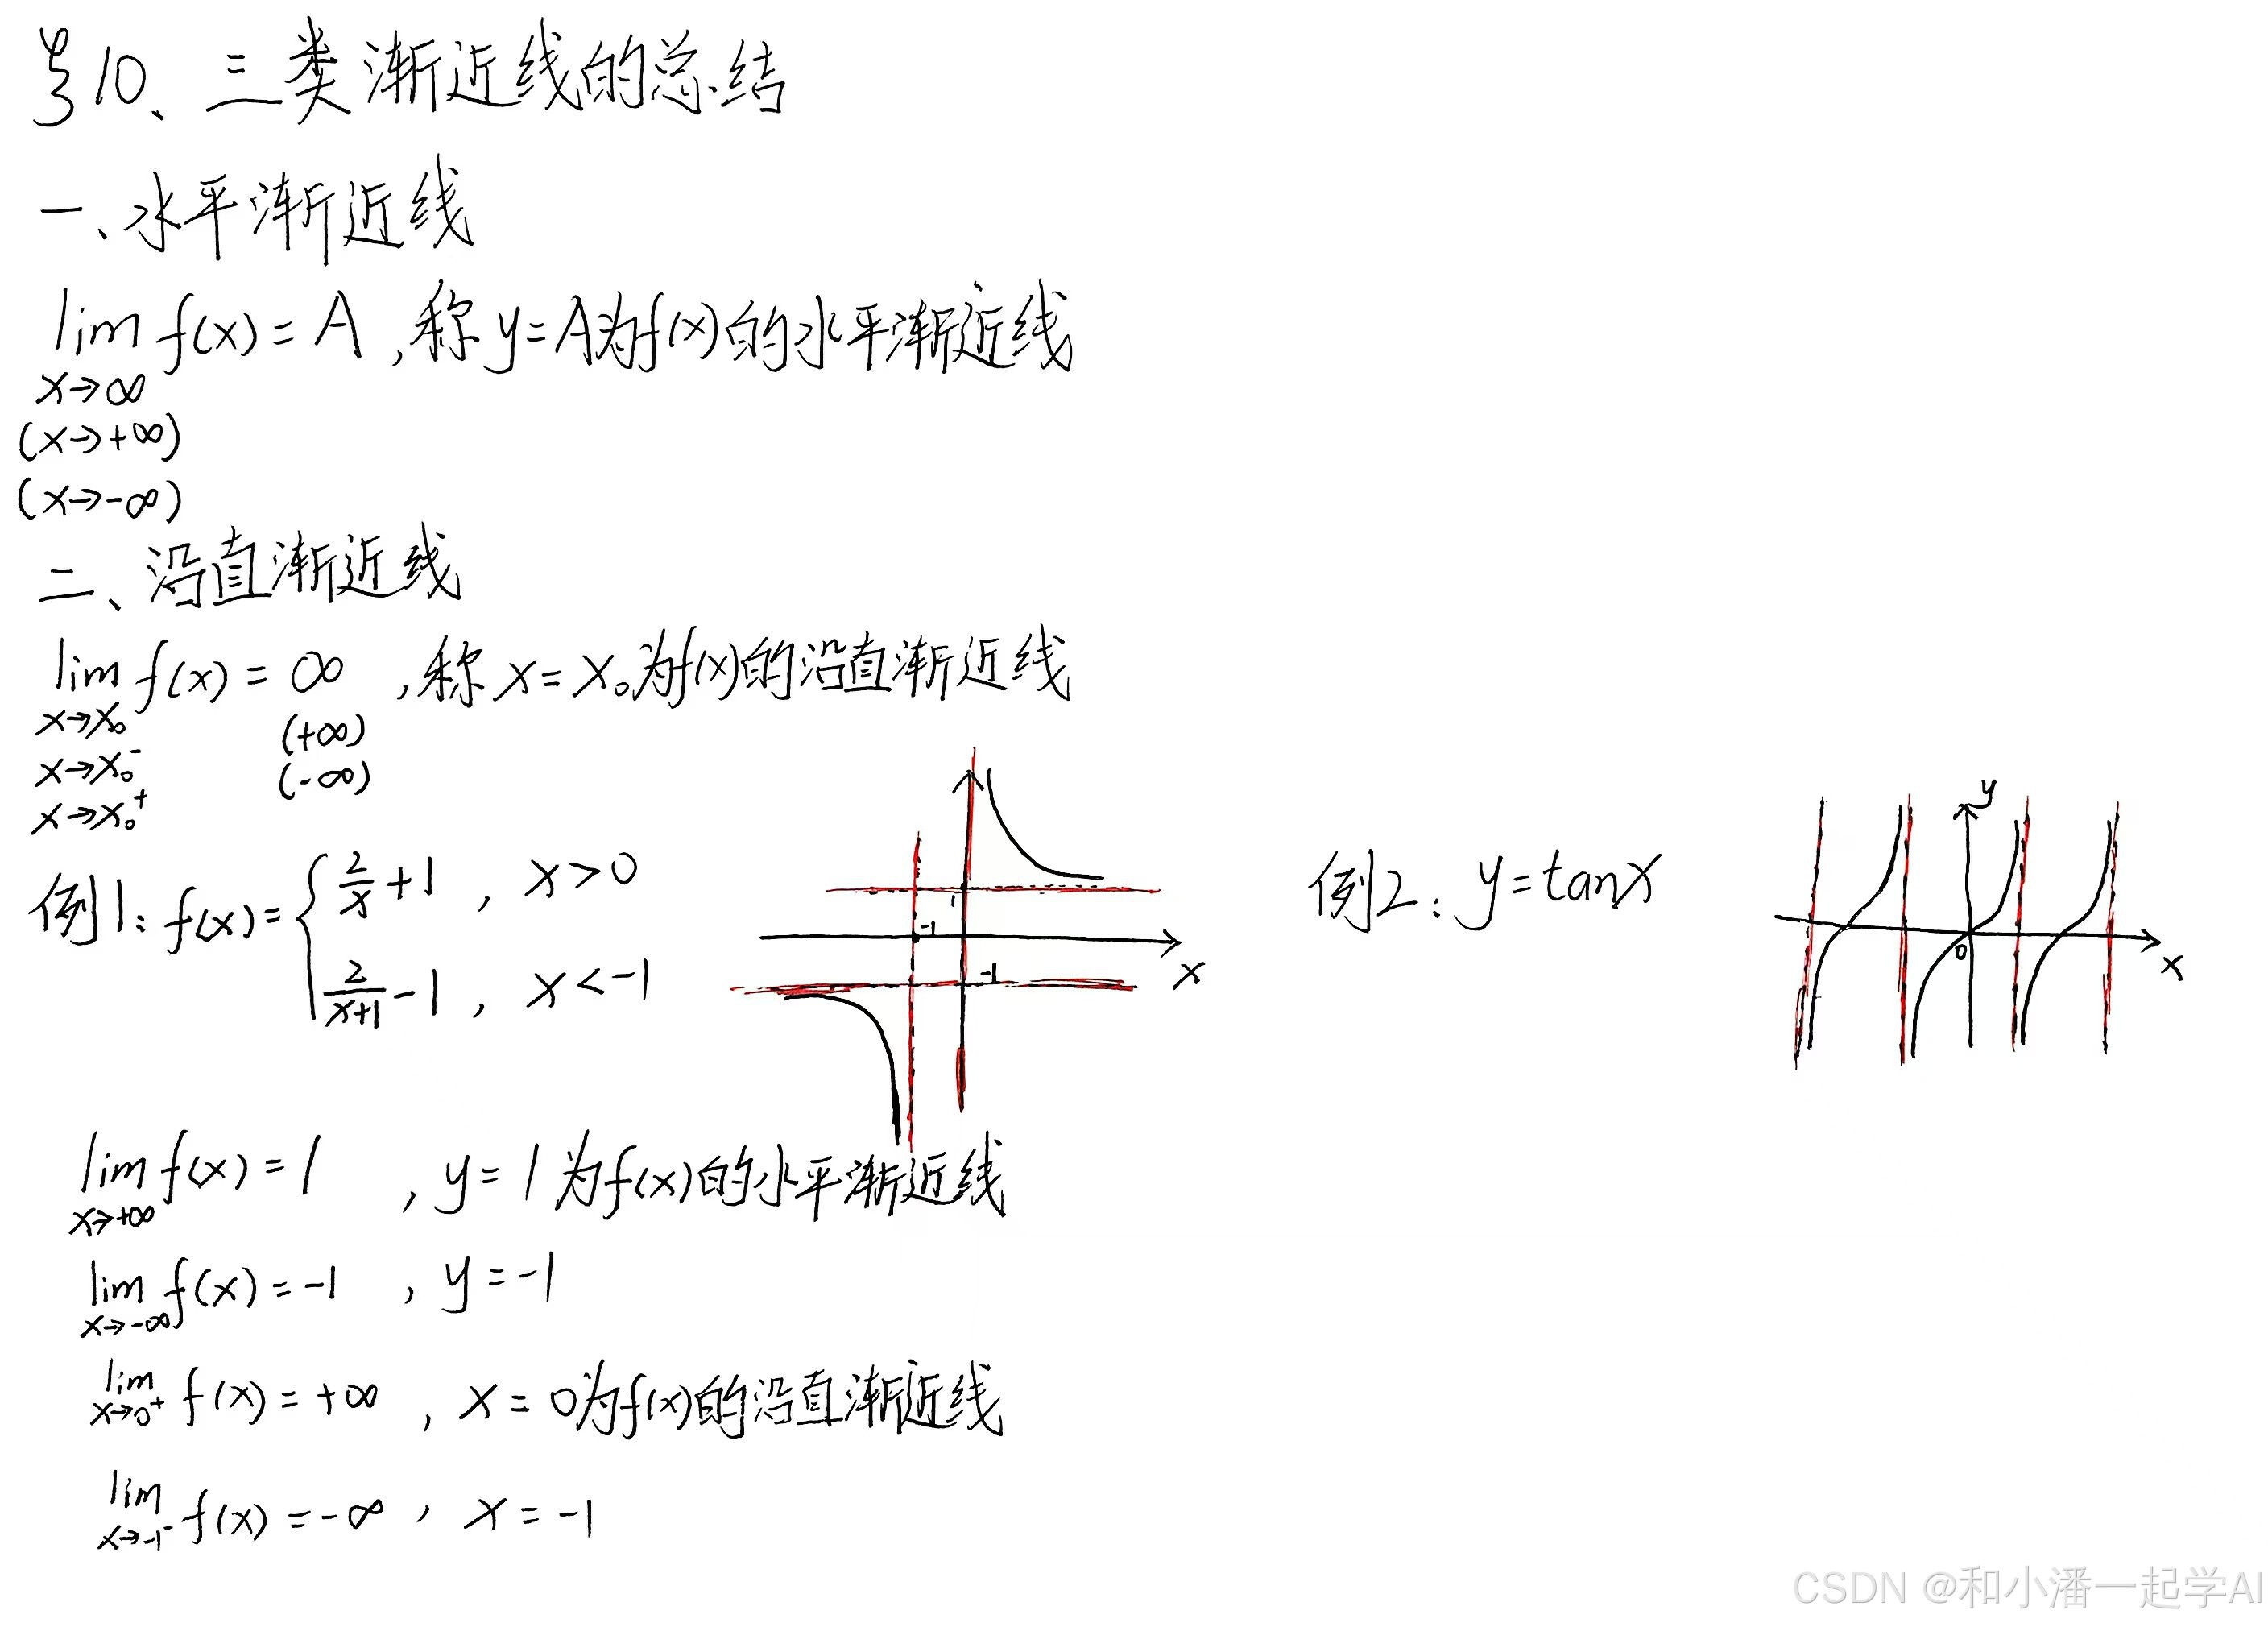 §10、三类渐近线的总结
一、水平渐近线
lim f(x) = A ,称 y=A为f(x)的水平渐近线
x→∞
(x→+∞)
(x→-∞)
二、沿直渐近线
lim f(x) = ∞ ,称 x = x₀为f(x)的沿直渐近线
x→x₀ (+∞)
x→x₀⁻ (-∞)
x→x₀⁺
例1: f(x)= { 2/x + 1 , x>0
2/(x+1) - 1 , x<-1
1
-1
-1
x
例2: y=tanx
y
0
x
lim f(x) = 1 , y = 1 为f(x)的水平渐近线
x→+∞
lim f(x) = -1 , y = -1
x→-∞
lim f(x) = +∞ , x = 0为f(x)的沿直渐近线
x→0⁺
lim f(x) = -∞ , x = -1
x→-1⁻
CSDN @和小潘一起学AI